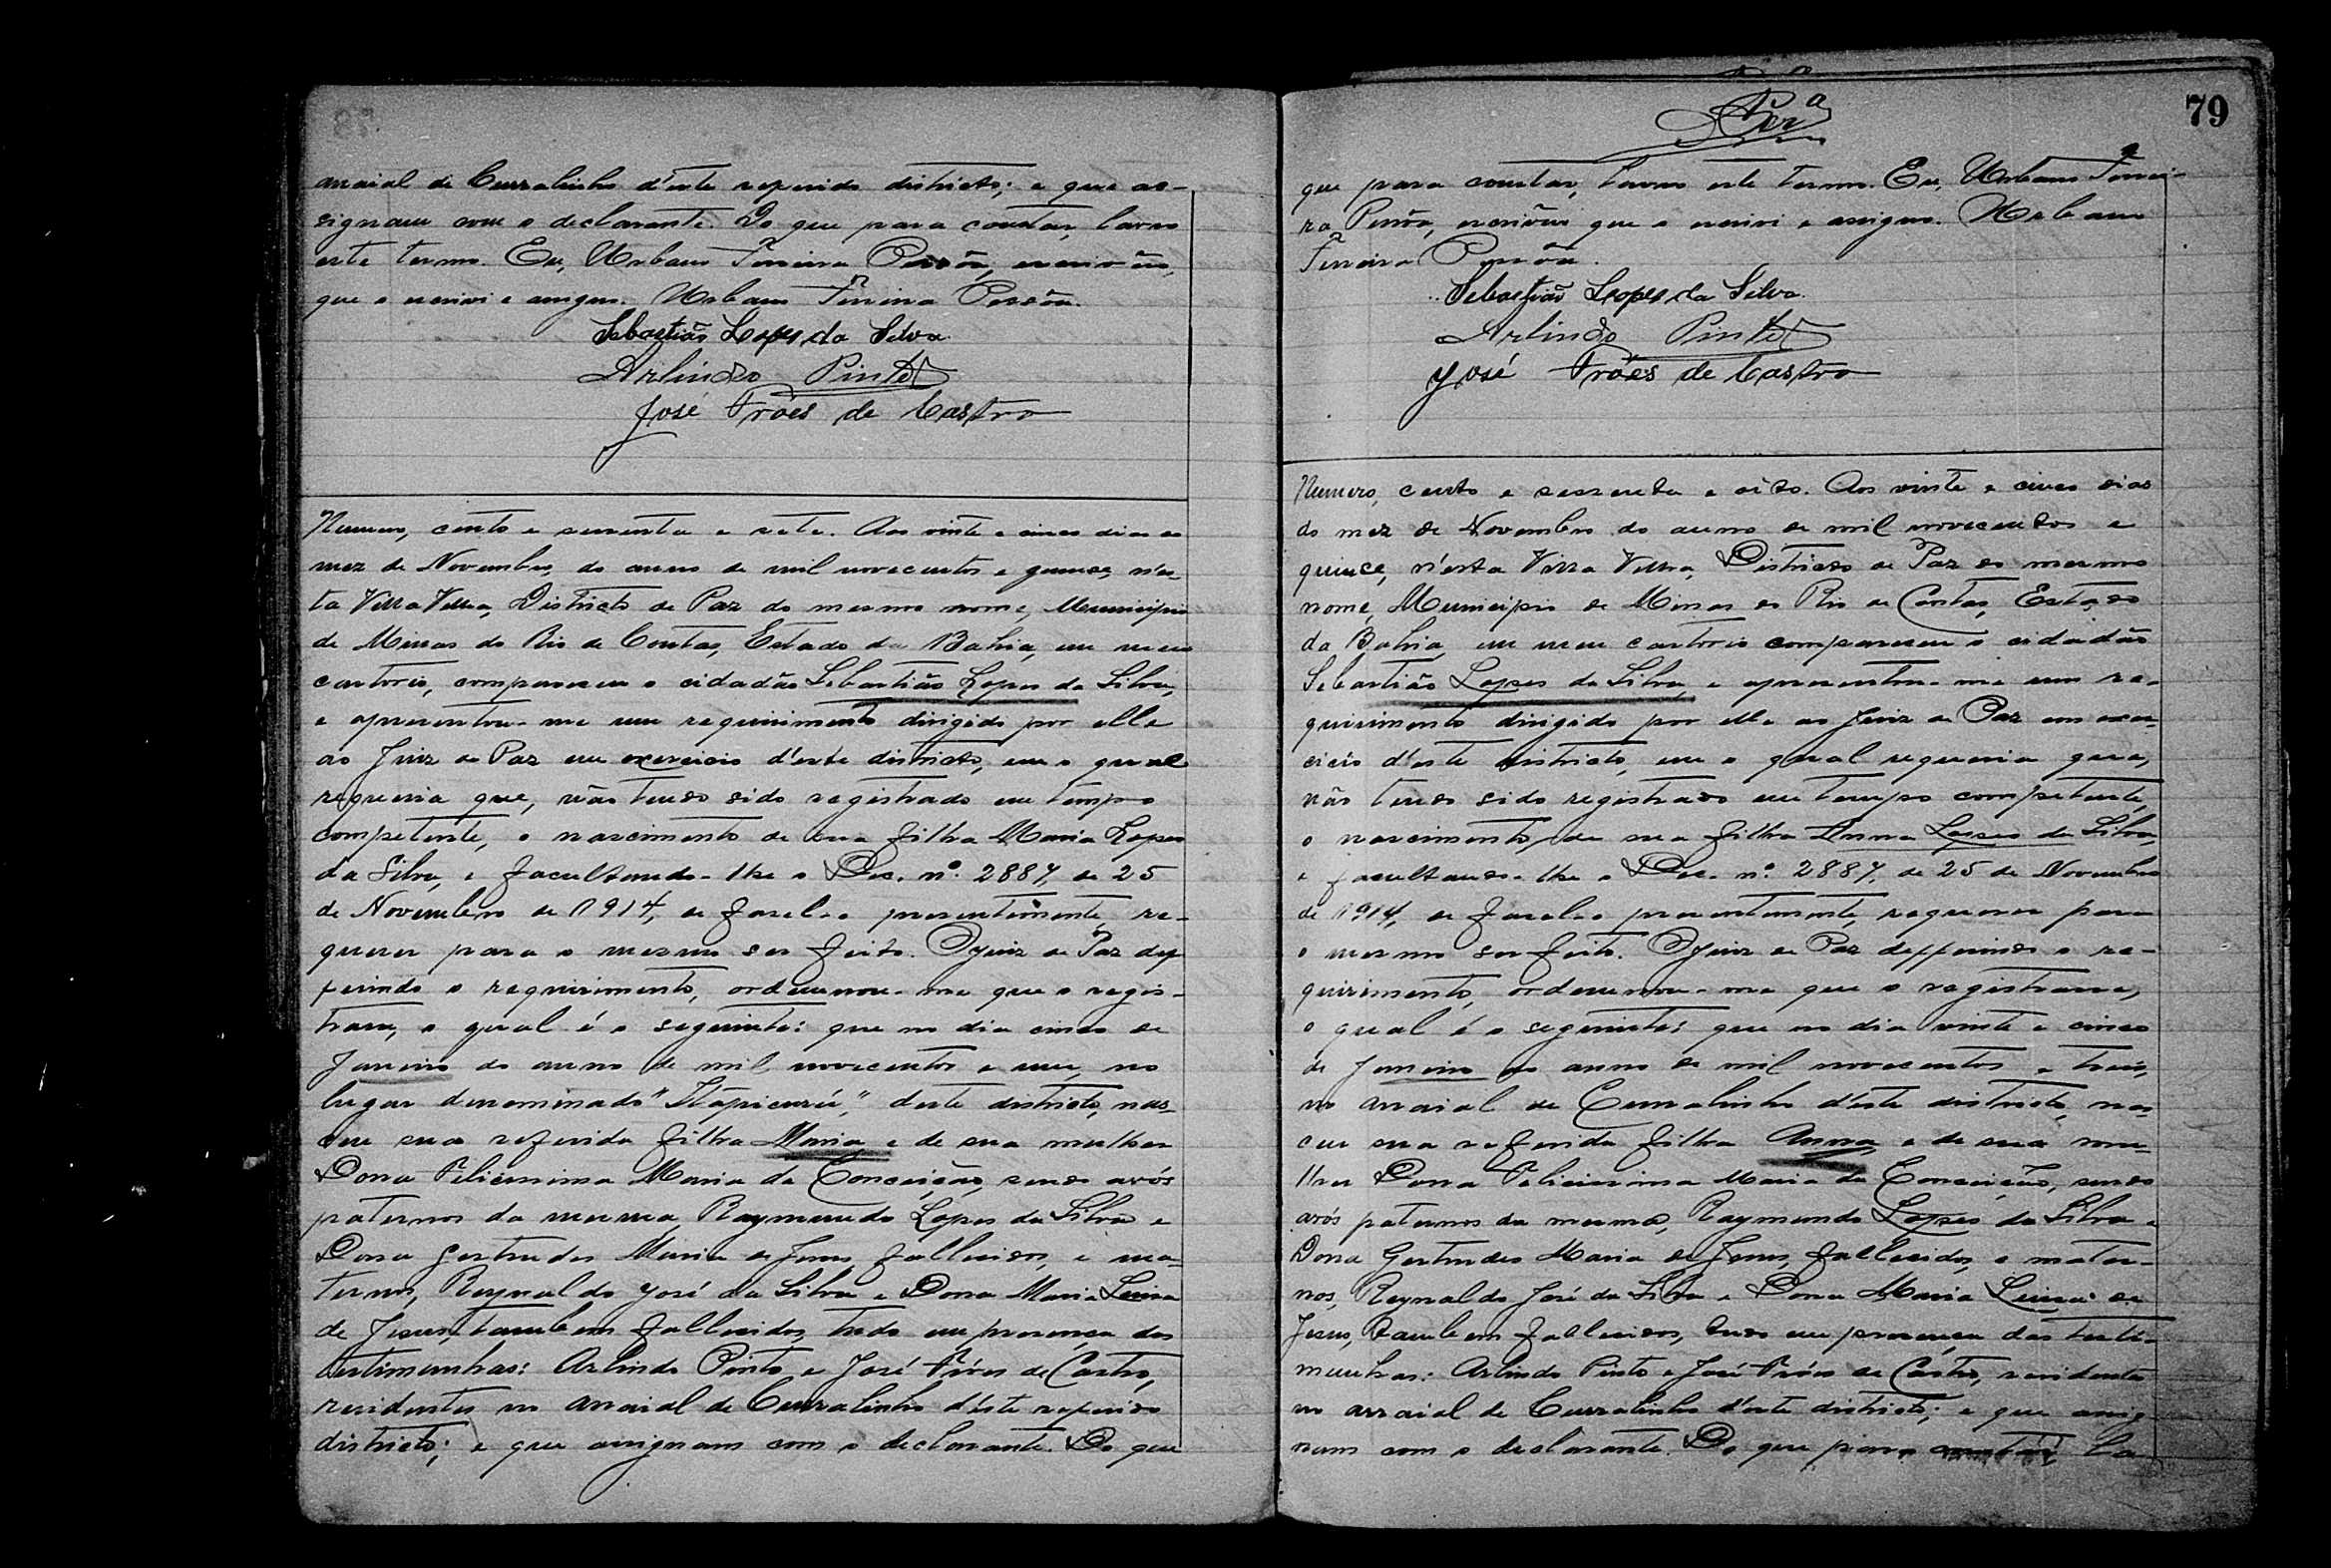 arraial de Curralinho d'este referido districto; e que as-
signam com o declarante. Do que para constar, lavro
este termo. Eu, Urbano Ferreira Pessôa, escrivão,
que o escrivi e assigno. Urbano Ferreira Pessôa.
Sebastião Lopes da Silva
Arlindo Pinto
José Fróes de Castro
Numero, cento e sessenta e sete. Aos vinte e cinco dias do
mez de Novembro, do anno de mil novecentos e quinze, n'es-
ta Villa Velha, Districto de Paz do mesmo nome, Municipio
de Minas do Rio de Contas, Estado da Bahia, em meu
cartorio, compareceu o cidadão Sebastião Lopes da Silva,
e apresentou-me um requirimento dirigido por elle
ao Juiz de Paz em exercicio d'este districto, em o qual
requeria que, não tendo sido registrado em tempo
competente, o nascimento de sua filha Maria Lopes
da Silva, e facultando-lhe o Dec. nº. 2887, de 25
de Novembro de 1914, de fazel-o presentemente re-
querer para o mesmo ser feito. O Juiz de Paz def-
ferindo o requirimento, ordenou-me que o regis-
trasse, o qual é o seguinte: que no dia cinco de
Janeiro do anno de mil novecentos e um, no
lugar denominado "Itapicurú", deste districto, nas-
ceu sua referida filha Maria e de sua mulher
Dona Felicissima Maria da Conceição, sendo avós
paternos da mesma, Raymundo Lopes da Silva e
Dona Gertrudes Maria de Jesus, fallecidos, e ma-
ternos, Reynaldo José da Silva e Dona Maria Luiza
de Jesus, tambem fallecidos, tudo em presença das
testimunhas: Arlindo Pinto e José Fróes de Castro,
residentes no arraial de Curralinho d'este referido
districto; e que assignam com o declarante. Do que
79
que para constar, lavro este termo. Eu, Urbano Ferrei-
ra Pessôa, escrivão que o escrivi e assigno. Urbano
Ferreira Pessôa.
Sebastião Lopes da Silva.
Arlindo Pinto
José Fróes de Castro
Numero, cento e sessenta e oito. Aos vinte e cinco dias
do mez de Novembro do anno de mil novecentos e
quince, n'esta Villa Velha, Districto de Paz do mesmo
nome, Municipio de Minas do Rio de Contas, Estado
da Bahia, em meu cartorio compareceu o cidadão
Sebastião Lopes da Silva, e apresentou-me um re-
quirimento dirigido por elle ao Juiz de Paz em exer-
cicio d'este districto, em o qual requeria que,
não tendo sido registrado em tempo competente,
o nascimento de sua filha Anna Lopes da Silva,
e facultando-lhe o Dec. nº. 2887, de 25 de Novembro
de 1914, de fazel-o presentemente, requerer para
o mesmo ser feito. O Juiz de Paz defferindo o re-
quirimento, ordenou-me que o registrasse,
o qual é o seguinte: que no dia vinte e cinco
de Janeiro do anno de mil novecentos e tres,
no arraial de Curralinho d'este districto, nas-
ceu sua referida filha Anna, e de sua mu-
lher Dona Felicissima Maria da Conceição, sendo
avós paternos da mesma, Raymundo Lopes da Silva e
Dona Gertrudes Maria de Jesus, fallecidos, e mater-
nos, Reynaldo José da Silva e Dona Maria Luiza de
Jesus, tambem fallecidos, tudo em presença das testi-
munhas: Arlindo Pinto e José Fróes de Castro, residentes
no arraial de Curralinho d'este districto; e que assig-
nam com o declarante. Do que para constar, la-